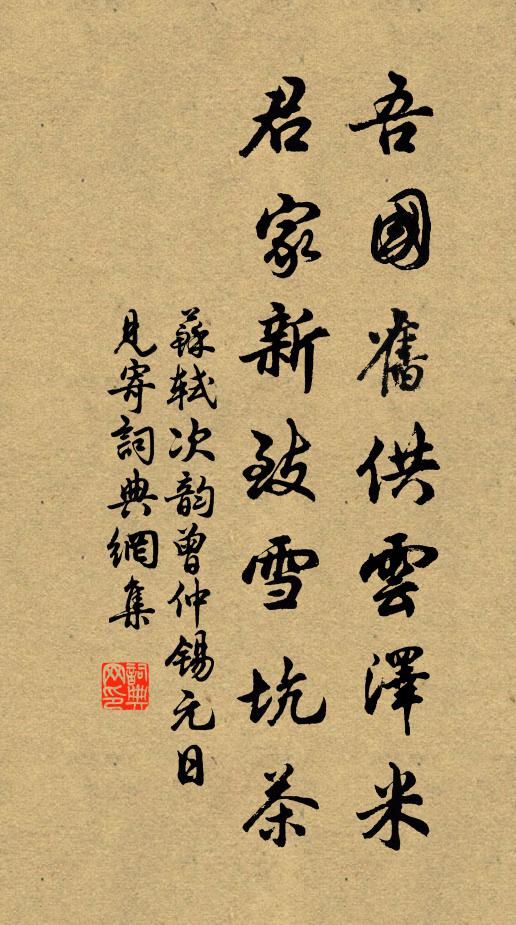 吾國舊供雲澤米
君家新致雪坑茶
蘇軾次韵曾仲錫元日
見寄詞典網集
詞典网印